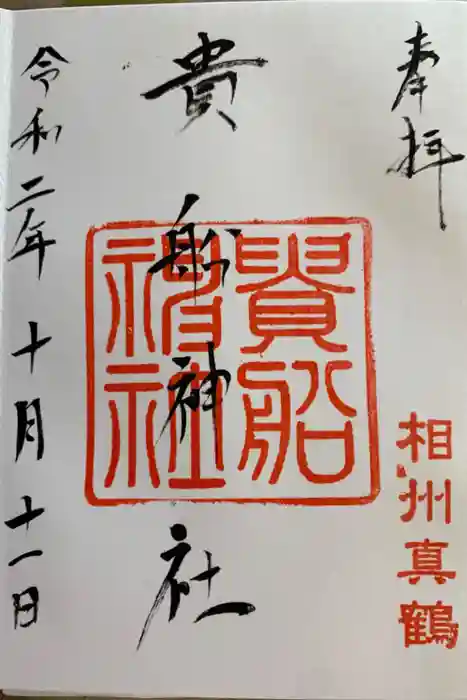 奉拝
相州真鶴
貴船神社
貴船
神社
令和二年十月十一日